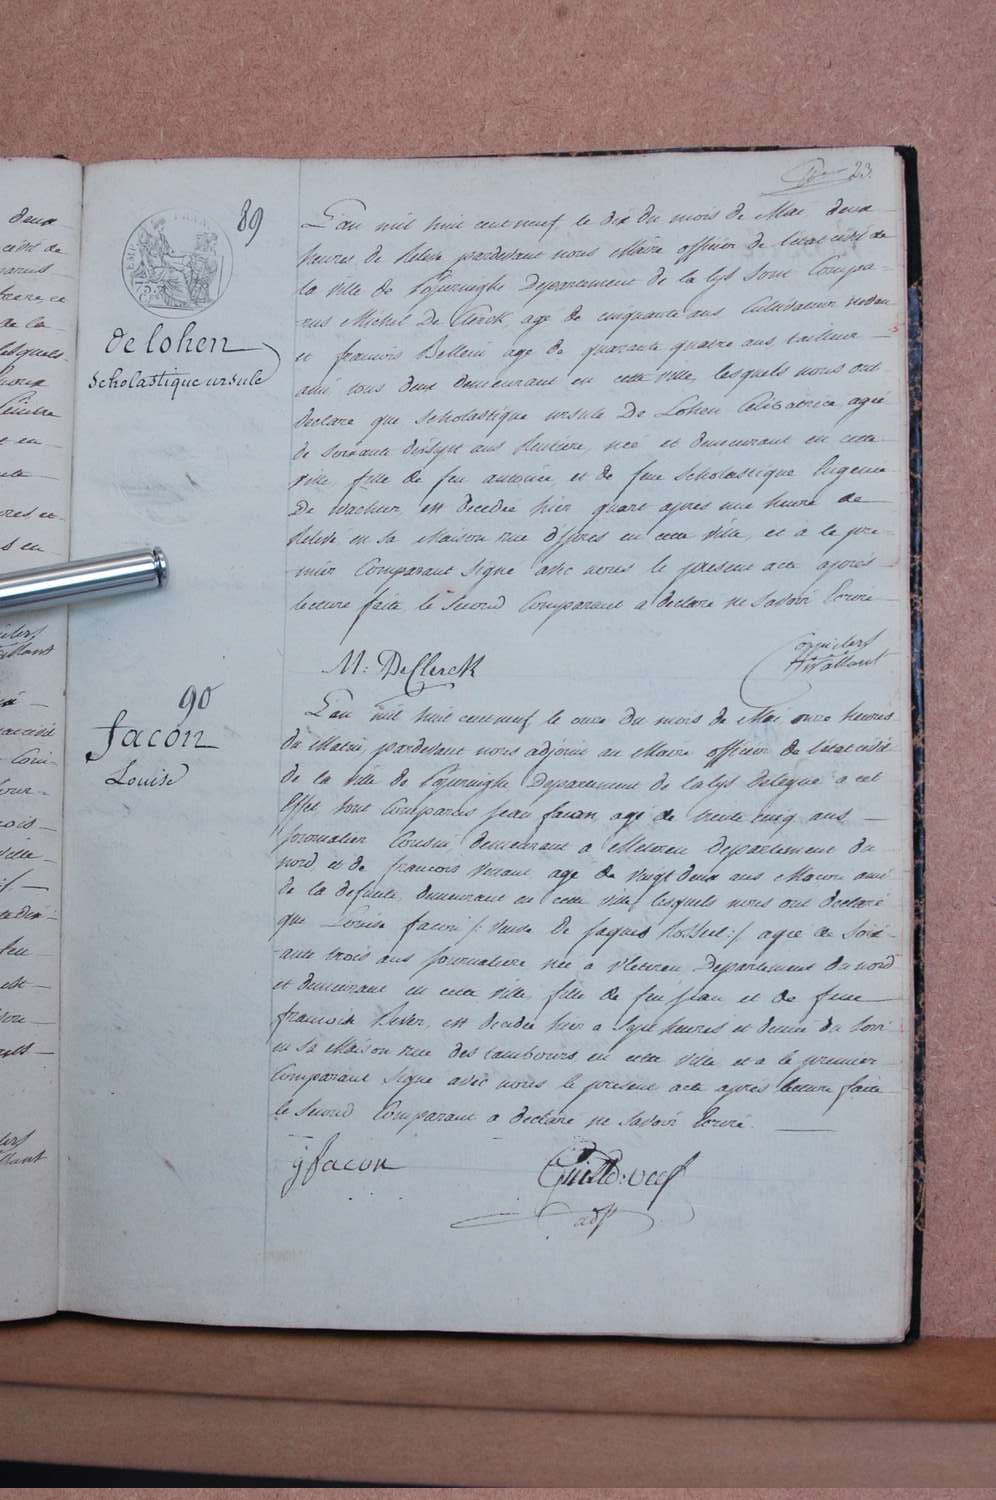 23.
89
L'an mil huit cent neuf le dix du mois de Mai deux
heures de Relevé pardevant nous Maire officier de l'etat civil de
la ville de Poperinghe Departement de la lys sont Compa-
-rus Michel De Clerck, age de cinquante ans Cultivateur voisin
et francois Bellein age de quarante quatre ans, tailleur
ami, tous deux demeurant en cette ville, lesquels nous ont
declaré que scholastique ursule De Lohen Celibatrice, agée
de soixante dixsept ans Rentiere, née et demeurant en cette
ville, fille de feu antoine, et de feue scholastique Eugenie
De wachter, est decedée hier quart apres une heure de
Relevé en sa Maison rue d'ypres en cette ville, et a le pre-
-mier Comparant signé avec nous le present acte après
lecture faite le second Comparant a declaré ne savoir Ecrire
de lohen
scholastique ursule
M: DeClerck
90
facon
Louise
L'an mil huit cent neuf le onze du mois de Mai onze heures
du Matin, pardevant nous adjoint au Maire officier de l'etat civil
de la ville de Poperinghe Departement de la lys delegué a cet
Effet sont Comparus jean facon, agé de trente cinq ans
journalier Cousin demeurant a Meteren Departement du
nord, et de francois age de vingt deux ans Macon ami
de la defunte, demeurant en cette ville, lesquels nous ont declaré
que Louise facon /: veuve de jaques :/ agée de soix-
-ante trois ans journaliere née a Departement du nord
et demeurant en cette ville, fille de feu jean et de feue
francoise est decedée hier a sept heures et demie du soir
en sa Maison rue des tambours en cette ville et a le premier
Comparant signé avec nous le present acte apres lecture faite
le second Comparant a declaré ne savoir Ecrire.
facon
adjt